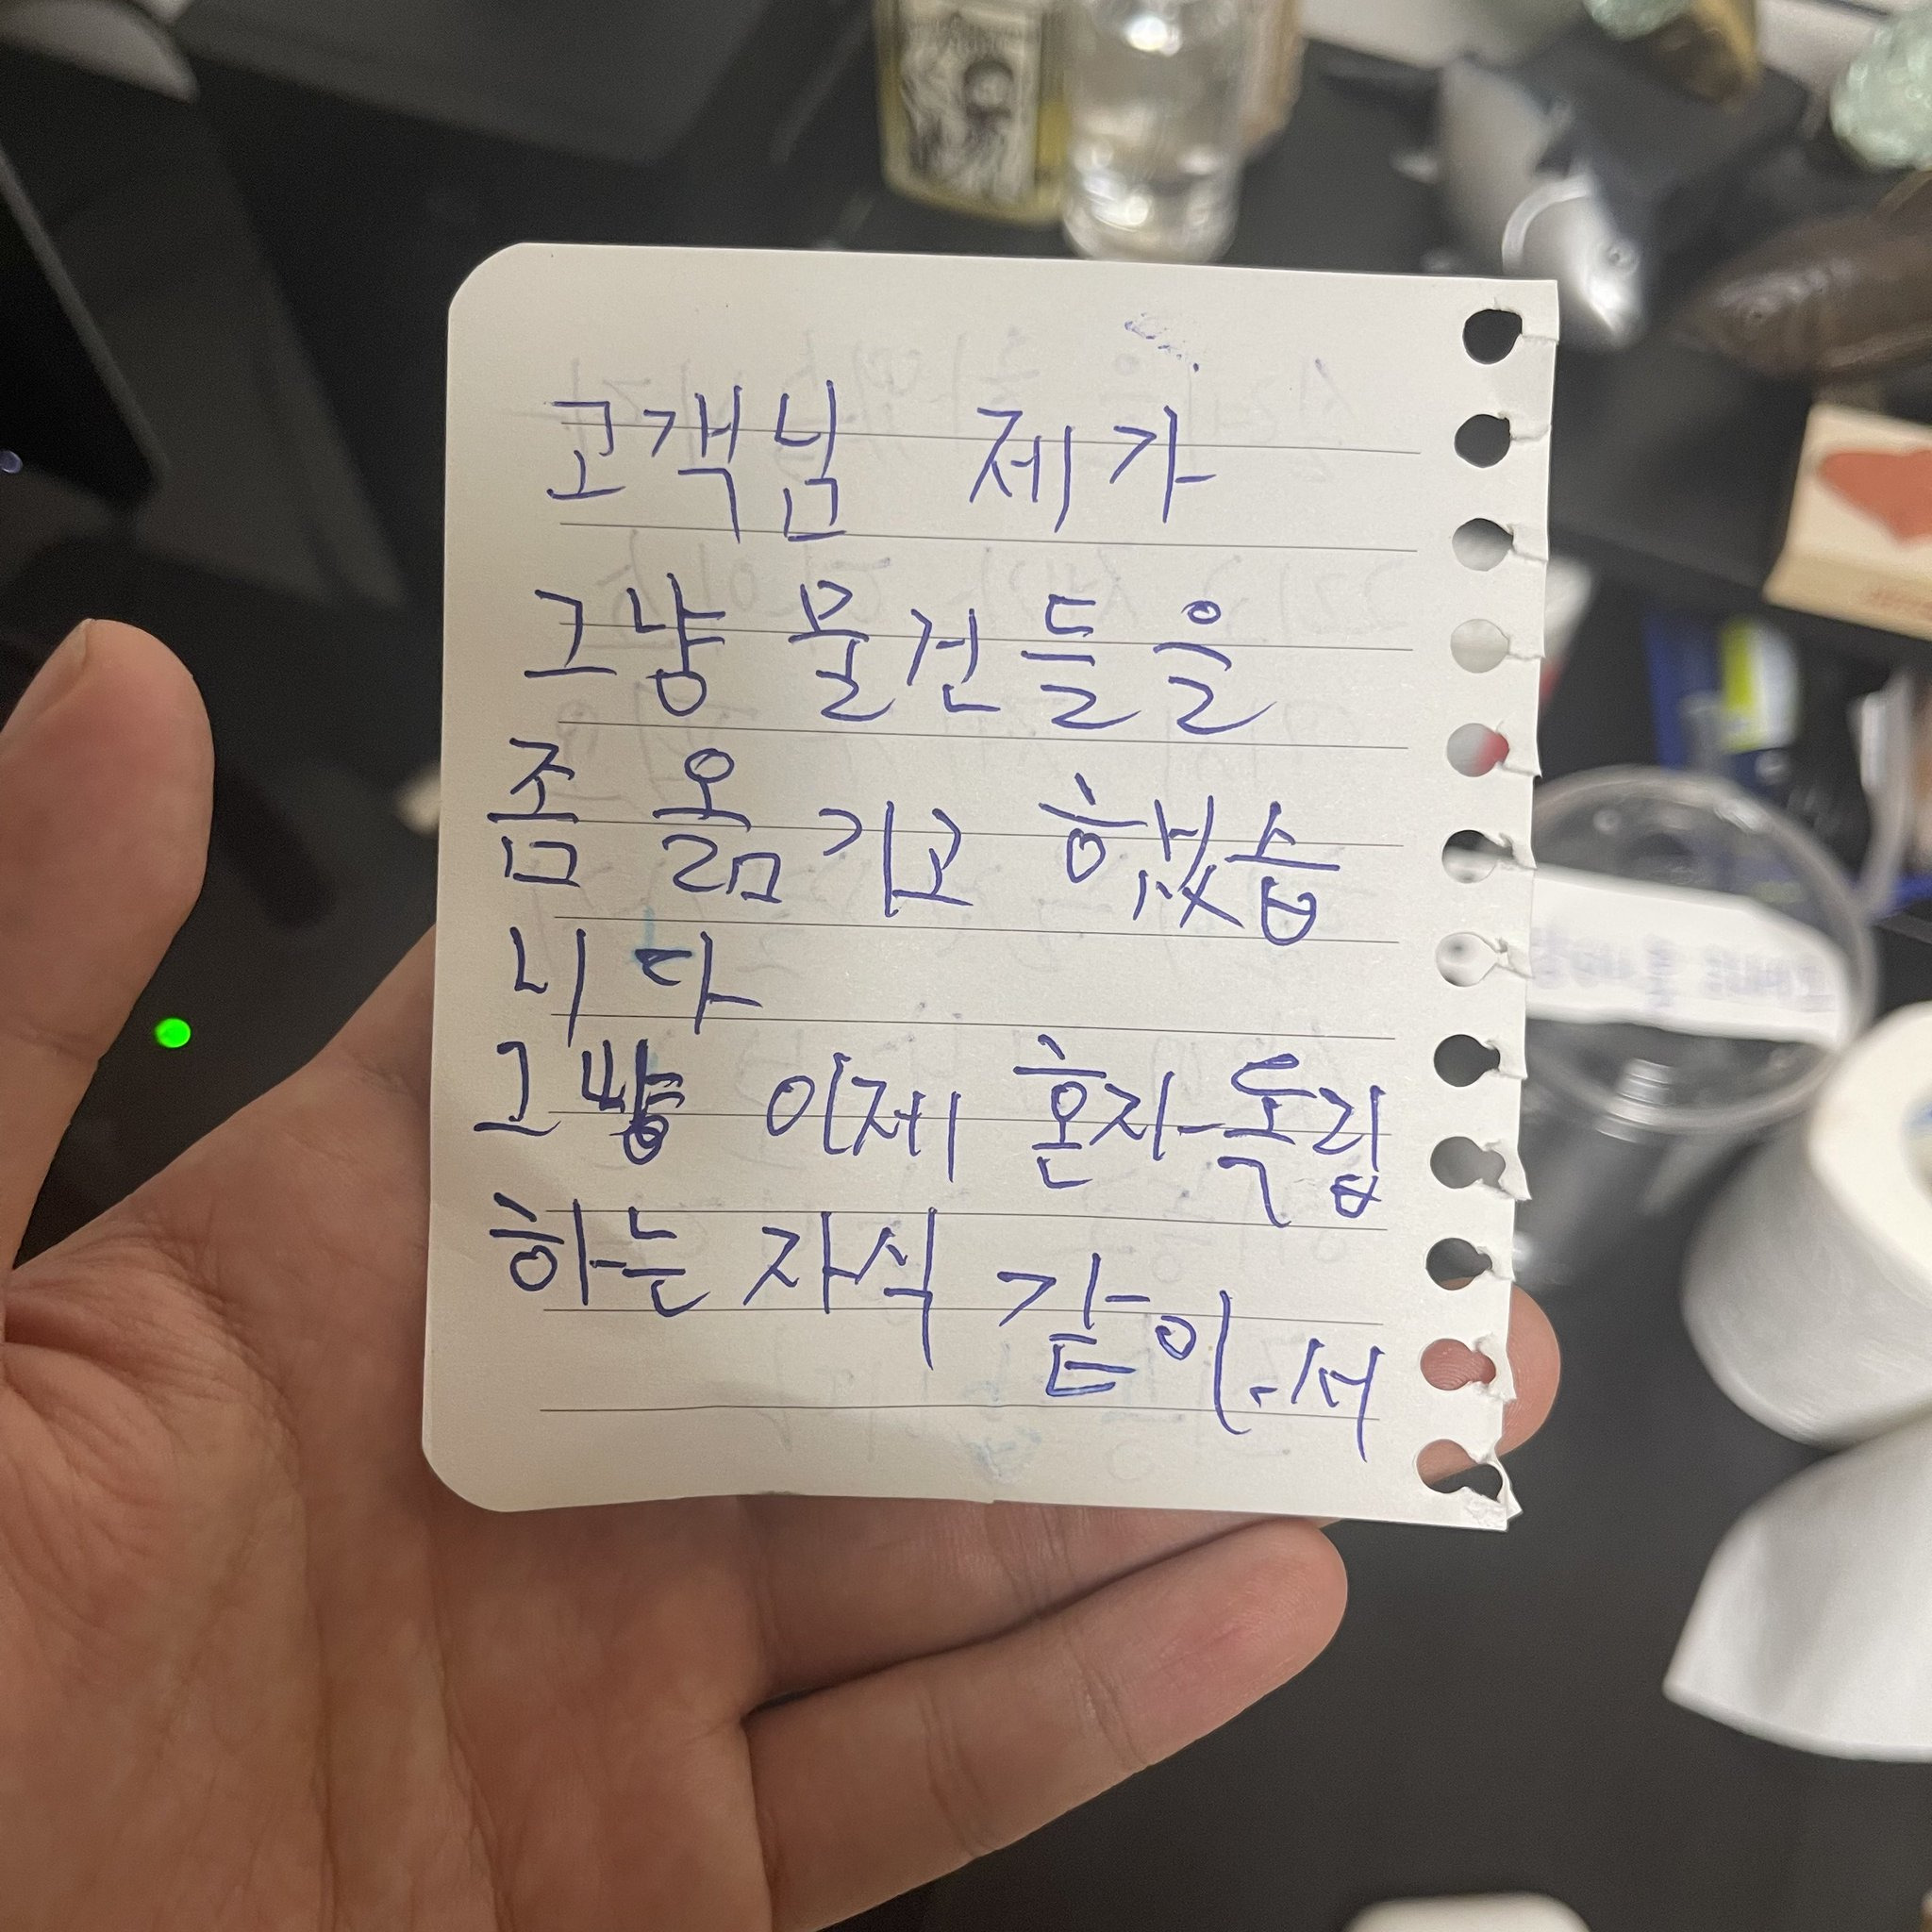 고객님 제가
그냥 물건들을
좀 옮기고 했습
니다
그냥 이제 혼자 독립
하는 자식 같이.서